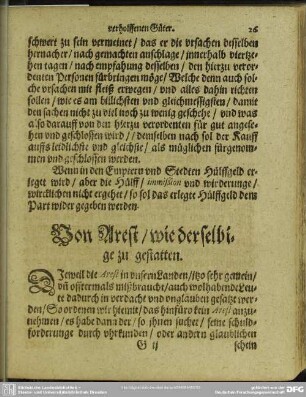 verholffenen Güter. 26
schwert zu sein vermeinet / das er die vrsachen desselben
hernacher / nach gemachten anschlage / innerhalb viertze-
hen tagen / nach empfahung desselben / den hierzu veror-
denten Personen fürbringen möge / Welche denn auch sol-
che vrsachen mit fleiß erwegen / vnd alles dahin richten
sollen / wie es am billichsten vnd gleichmessigsten / damit
den sachen nicht zu viel noch zu wenig geschehe / vnd was
also darauff von den hierzu verordenten für gut angese-
hen vnd geschlossen wird / demselben nach sol der Kauff
auffs leidlichste vnd gleichste / als müglichen fürgenom-
men vnd geschlossen werden.
Wenn in den Emptern vnd Stedten Hülffgeld er-
legt wird / aber die Hülff / immission vnd wirderunge /
wircklichen nicht ergehet / so sol das erlegte Hülffgeld dem
Part wider gegeben werden
Von Arest / wie derselbi-
ge zu gestatten.
DJeweil die Arest in vnsern Landen / itzo sehr gemein /
vñ offtermals mißbraucht / auch wolhabende Leu-
te dadurch in verdacht vnd vnglauben gesatzt wer-
den / So ordenen wir hiemit / das hinfüro kein Arest anzu-
nehmen / es habe dann der / so jhnen suchet / seine schuld-
forderunge durch vhrkunden / oder andern glaublichen
G ij schein